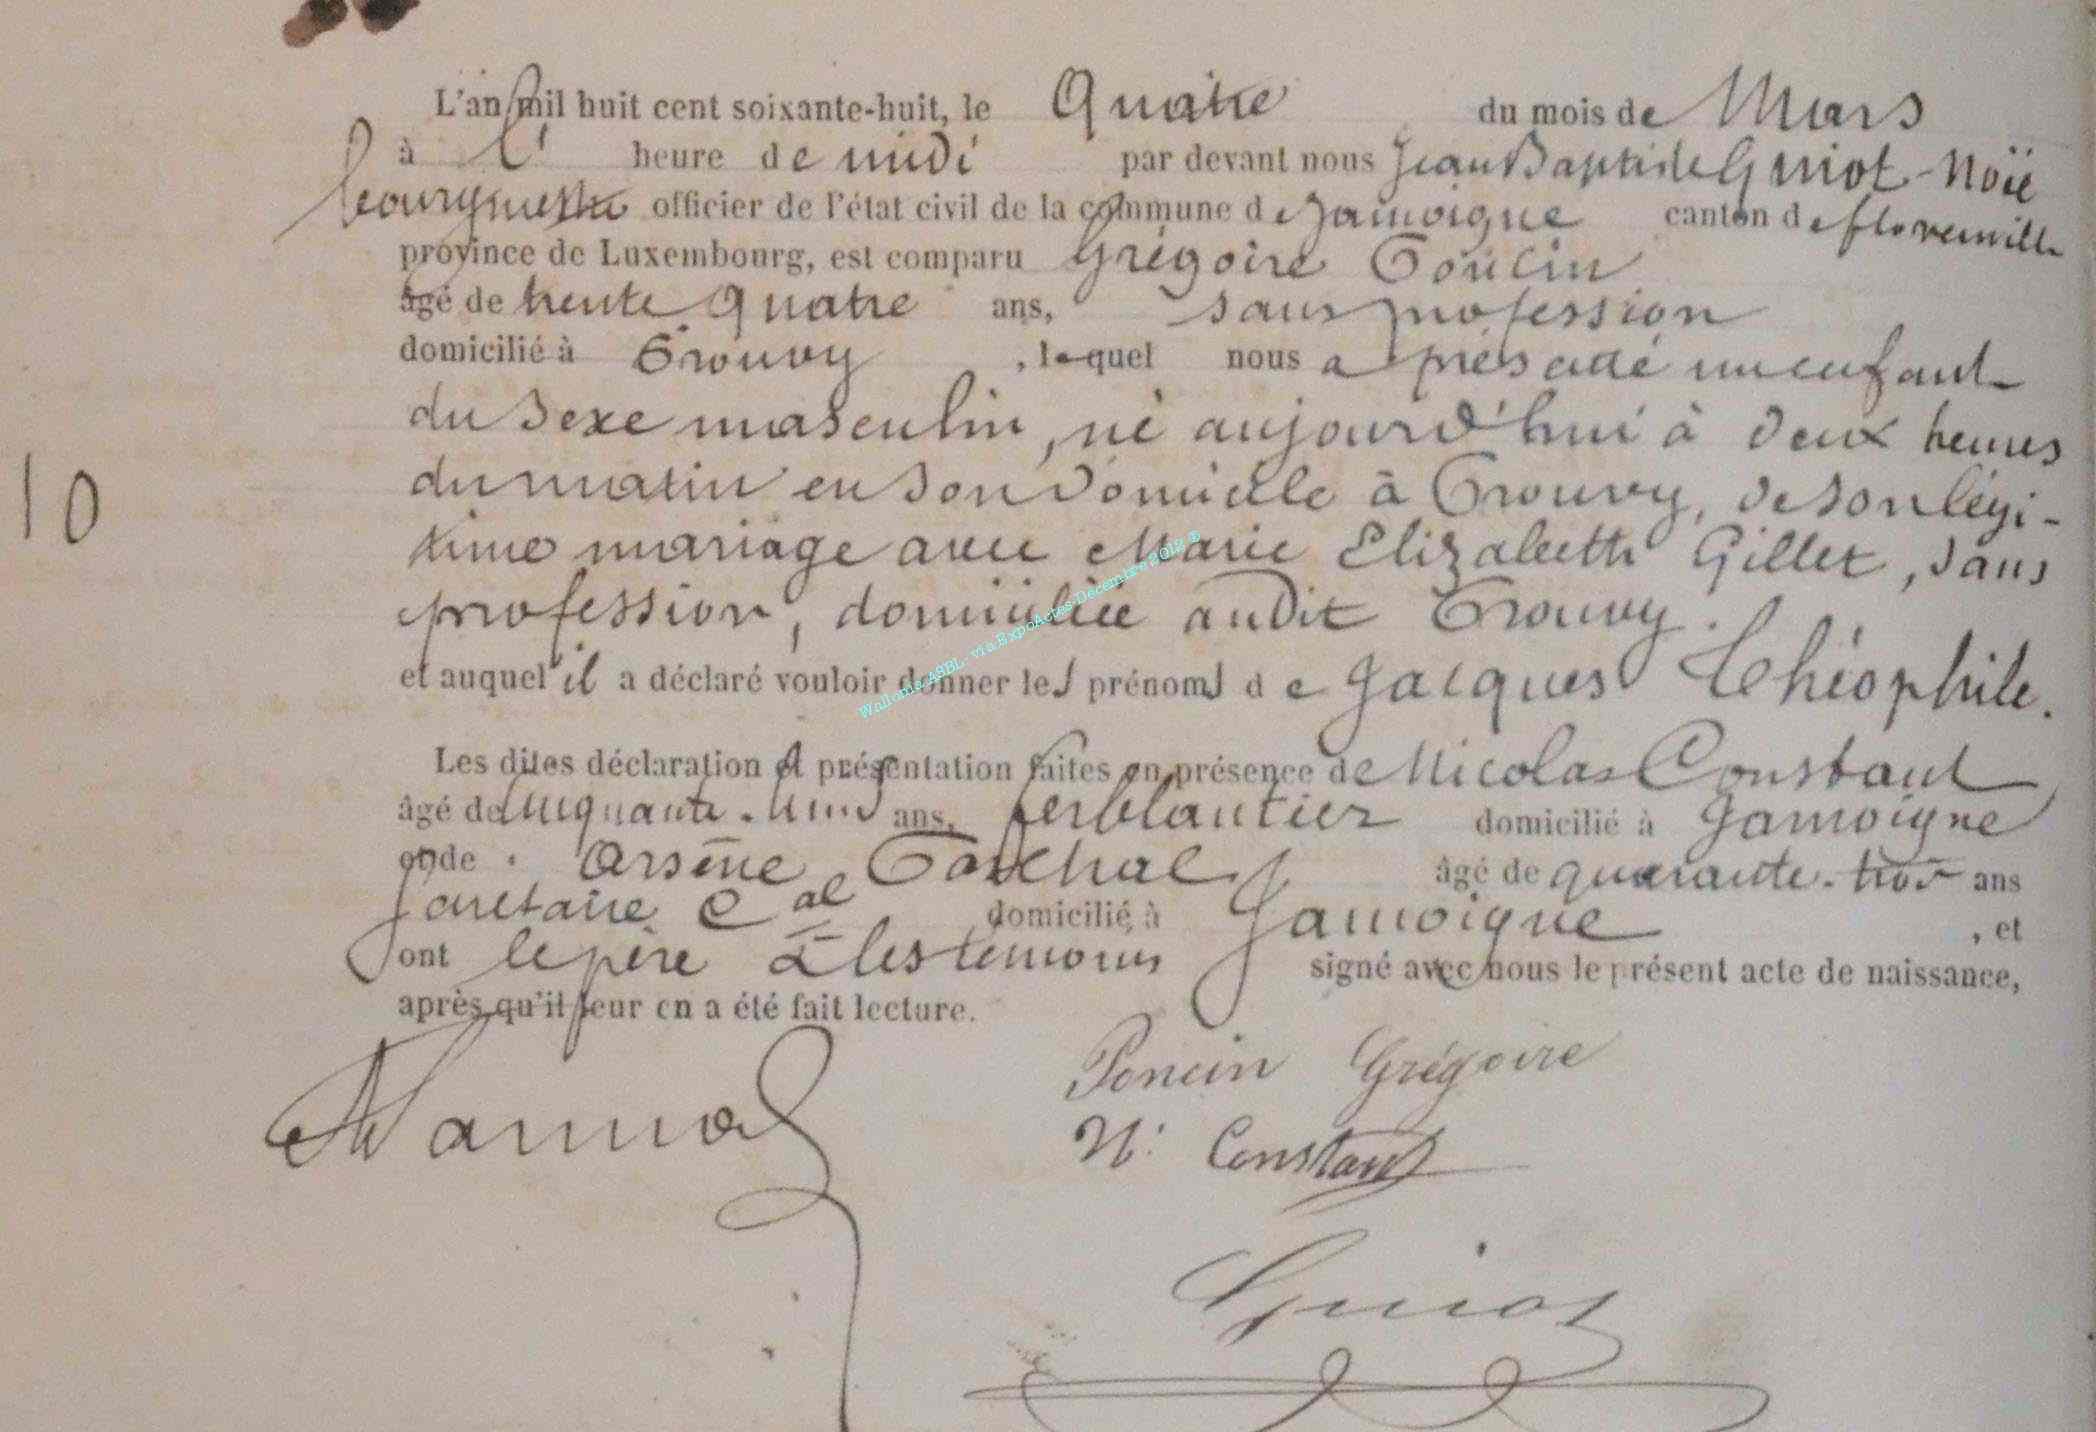 L'an mil huit cent soixante-huit, le Quatre du mois de Mars
à l' heure de midi par devant nous Jean Baptiste Guiot-Noïé
bourgmestre officier de l'état civil de la commune de Jamoigne canton de florenville
province de Luxembourg, est comparu Grégoire
âgé de trente quatre ans, sans profession
domicilié à Prouvy, lequel nous a présenté un enfant
du sexe masculin, né aujourd'hui à deux heures
du matin en son domicile à Prouvy, de son légi-
time mariage avec Marie Elizabeth Gillet, sans
profession, domiciliée audit Prouvy.
et auquel il a déclaré vouloir donner les prénoms de Jacques Théophile.
Les dites déclaration et présentation faites en présence de Nicolas Constant
âgé de cinquante ans, ferblantier domicilié à Jamoigne
et de Arsène âgé de quarante-trois ans
secrétaire Cal domicilié à Jamoigne, et
ont le père & les témoins signé avec nous le présent acte de naissance,
après qu'il leur en a été fait lecture.
Poncin Grégoire
N. Constant
Guiot
10
Wallonia ASBL - via ExpoActes-Décembre 2012 ®